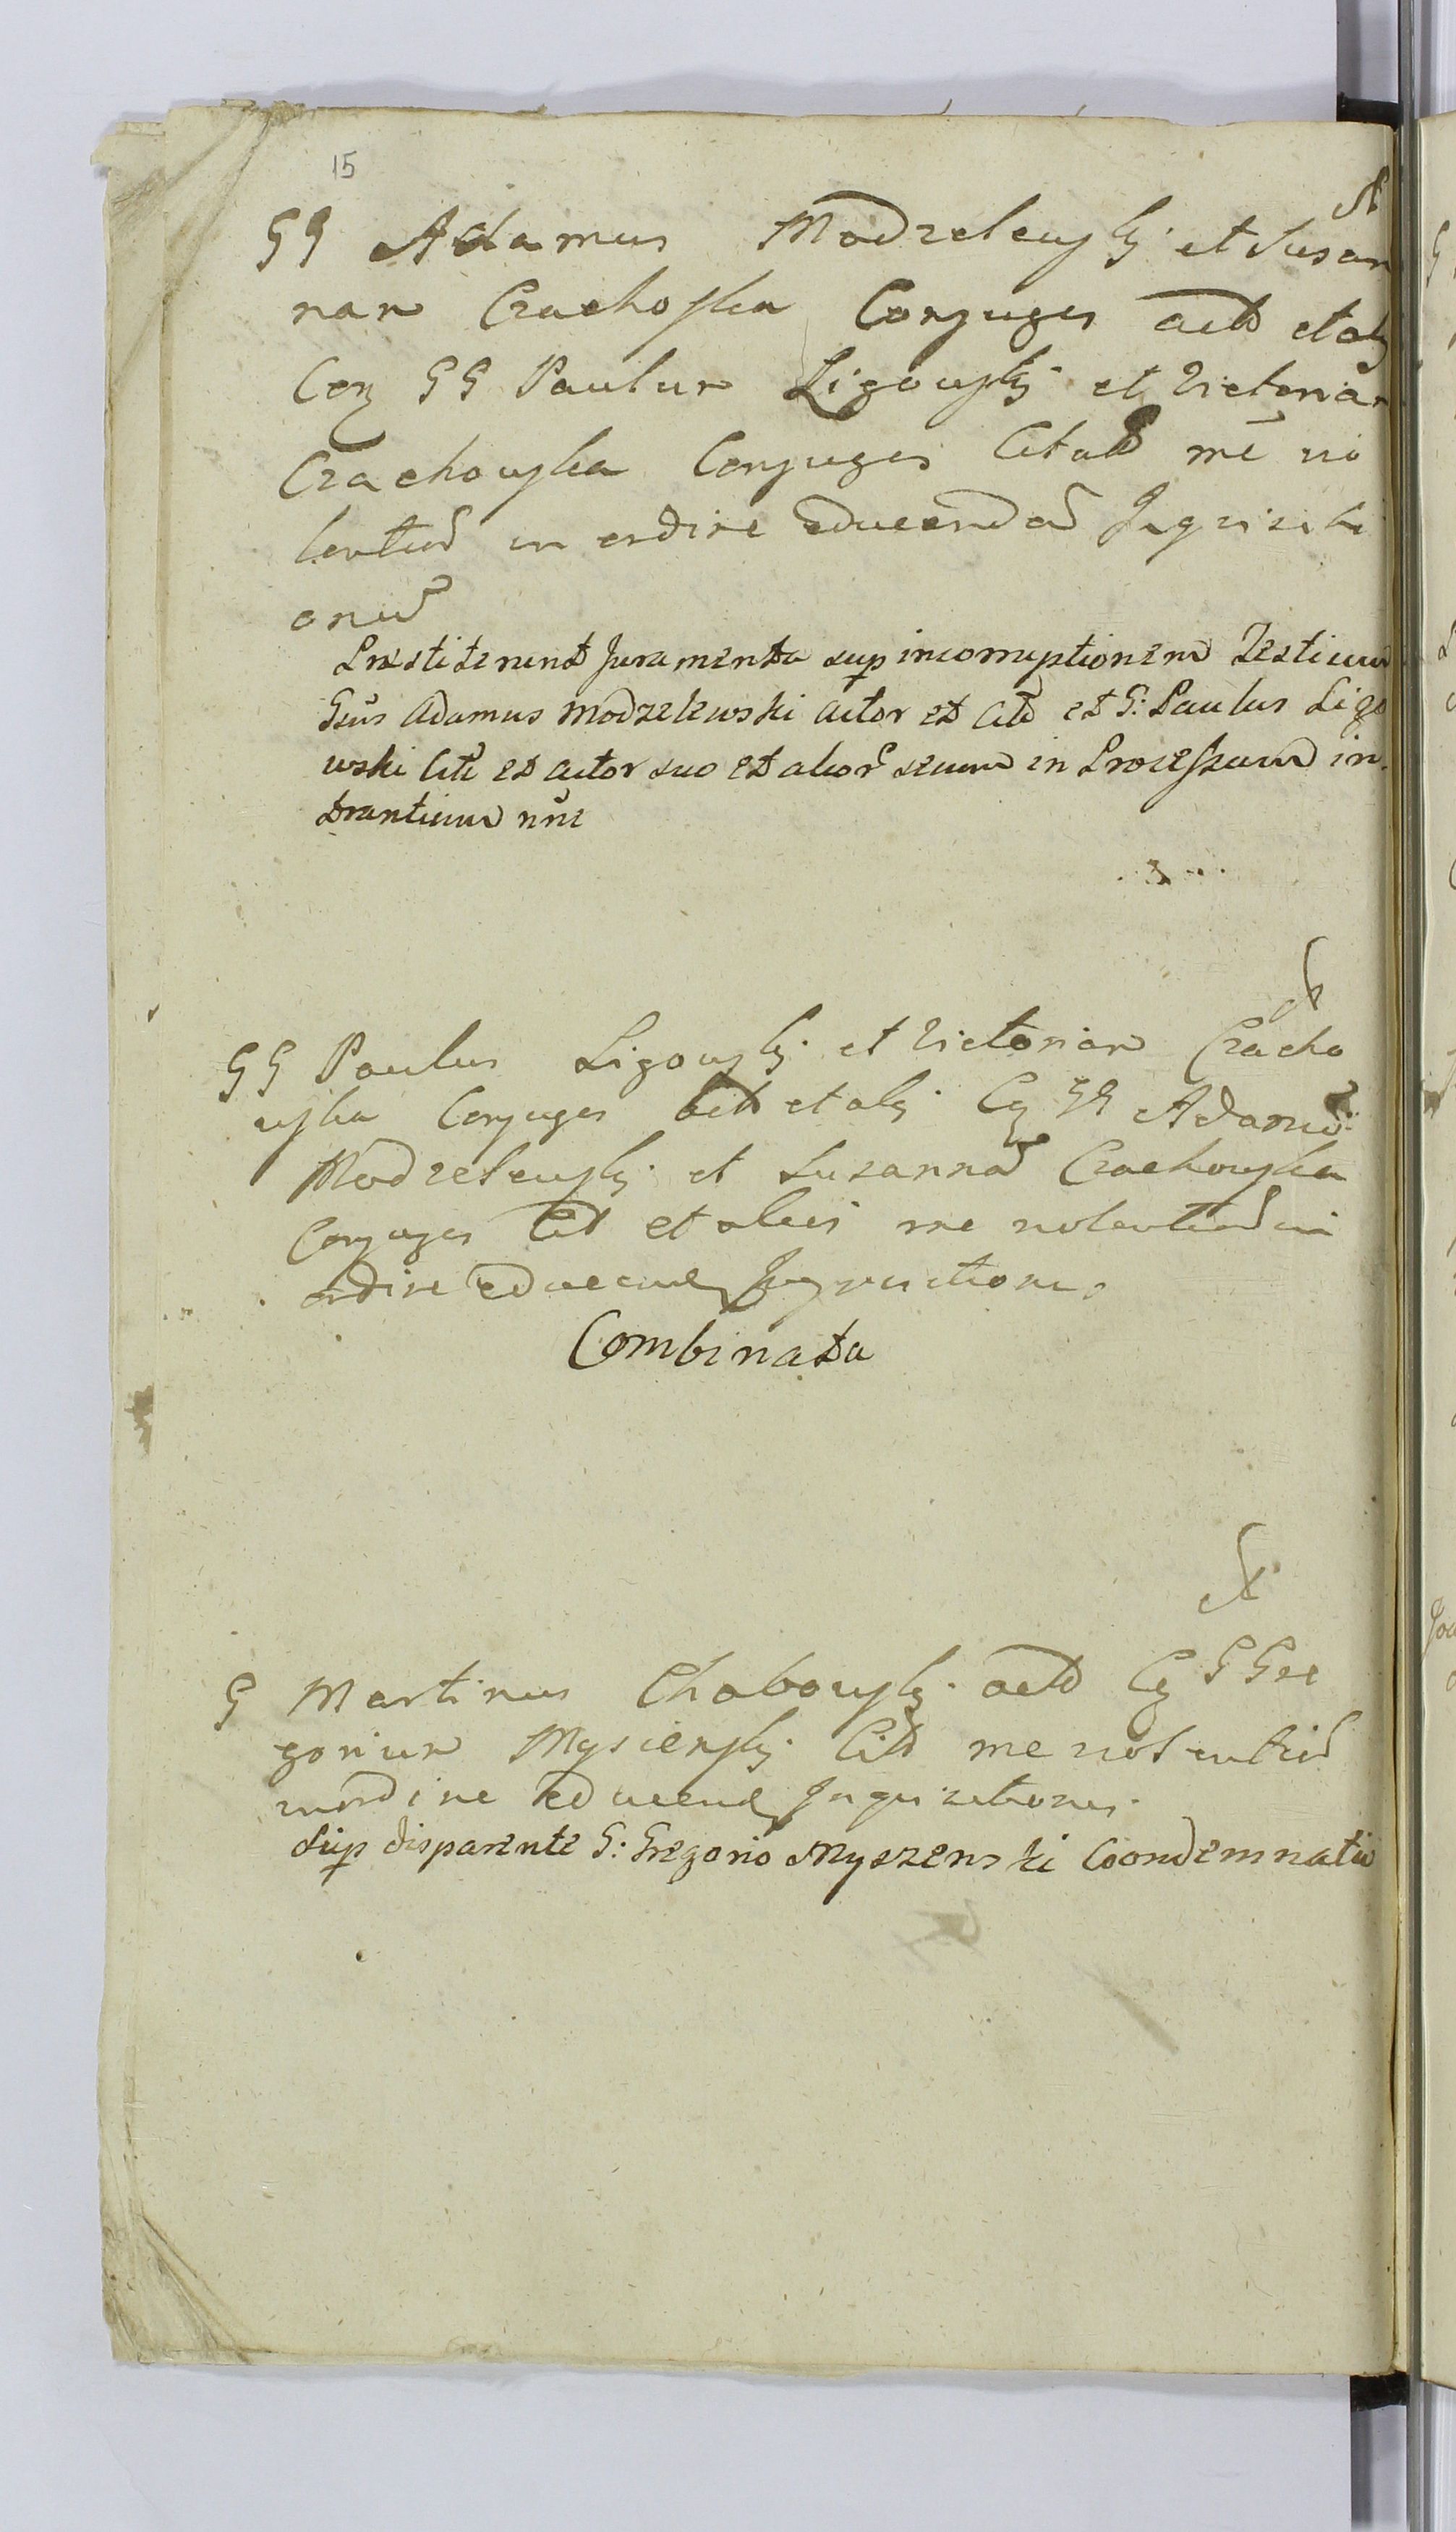 15
GG Adamus Modzelewski et Susan
nam Czachoska Conjuges act et alij
Con GG Paulum Ligowski et Victoriam
Czachowska Conjuges Citatt me vio
lentium in ordine educendar Inquisiti
onum
Præstiterunt Juramenta sup incorruptionem Testium
Gsus Adamus Modzelewski Actor et Citt et G: Paulus Ligo
wski Citt et Actor suo et alior secum in Processum in
trantium nne
GG Paulus Ligowski et Victoriam Czacho
wska Conjuges act et alij Cq GG Adamum
Modzelewski et Susannam Czachowska
Conjuges Citt et aliis me nolentium in
ordine educend Inquisitiones
Combinata
G Martinus Chabowski act Cq G Gre
gorium Mysienski Citt me nolentium
in ordine educend Inquisitiones
Sup disparente G: Gregorio Myszenski Condemnatio